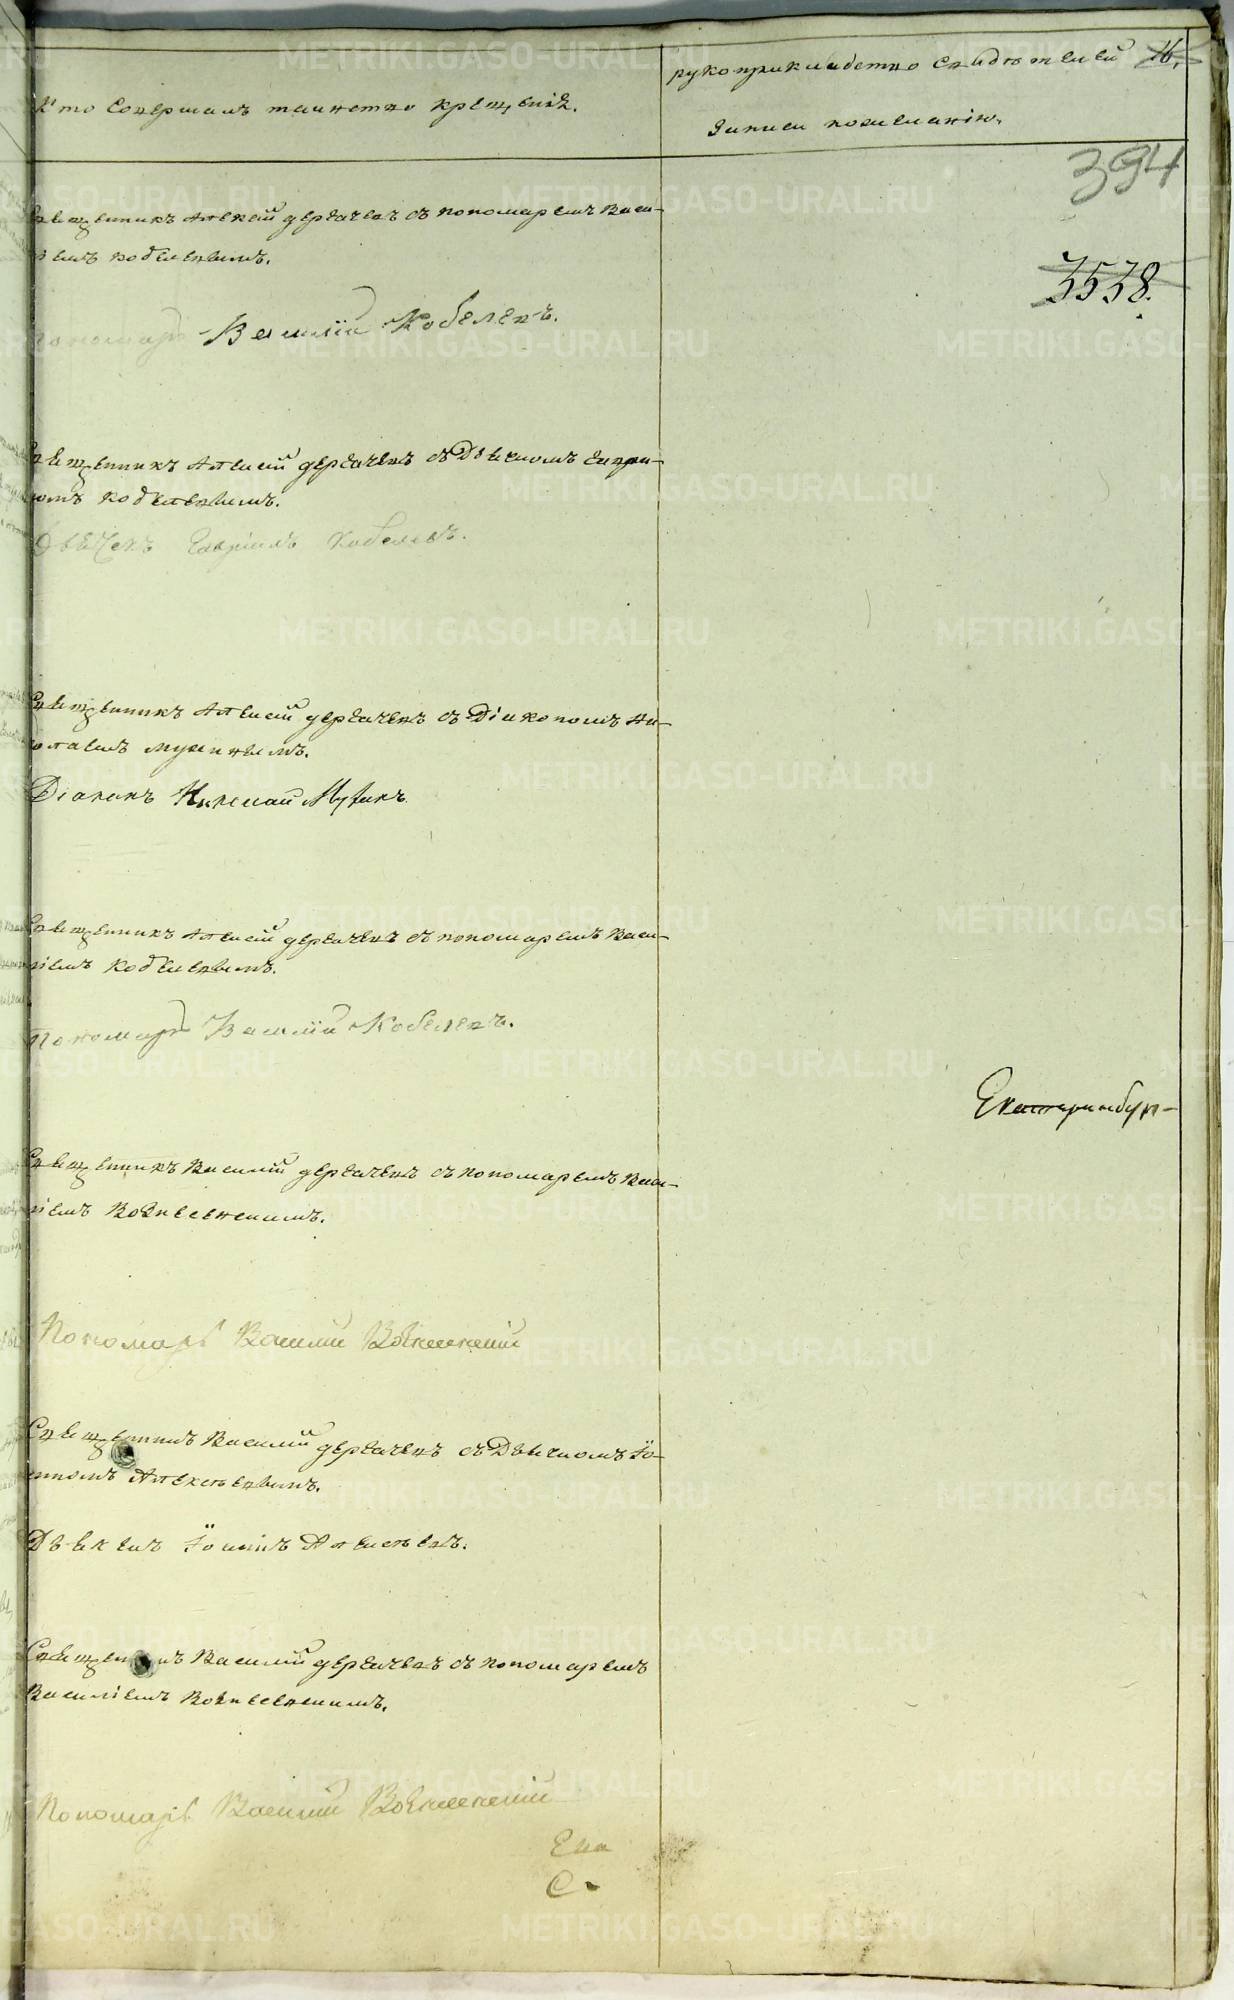 Кто Совершалъ таинство крещенія.
рукоприкладство свидѣтелей
записи пожеланію.
16.
394
3538.
Священникъ Алексій Дергачевъ съ пономаремъ Васи-
ліемъ Кобелевымъ.
Пономарь Василій Кобелевъ.
Священникъ Алексій Дергачевъ съ Дьячкомъ Гаврі-
ломъ Кобелевымъ.
Дьячекъ Гавріилъ Кобелевъ.
Священникъ Алексій Дергачевъ съ Діакономъ Ни-
колаемъ
Діаконъ Николай
Священникъ Алексій Дергачевъ съ пономаремъ Васи-
ліемъ Кобелевымъ.
Пономарь Василій Кобелевъ.
Екатеринбург-
Священникъ Василій Дергачевъ съ пономаремъ Васи-
ліемъ Вознесенскимъ.
Пономарь Василій Вознесенскій
Священникъ Василій Дергачевъ съ Дьячкомъ Іо-
анномъ Алексѣевымъ.
Іоаннъ Алексѣевъ.
Священникъ Василій Дергачевъ съ пономаремъ
Василіемъ Вознесенскимъ.
Пономарь Василій Вознесенскій
METRIKI.GASO-URAL.RU